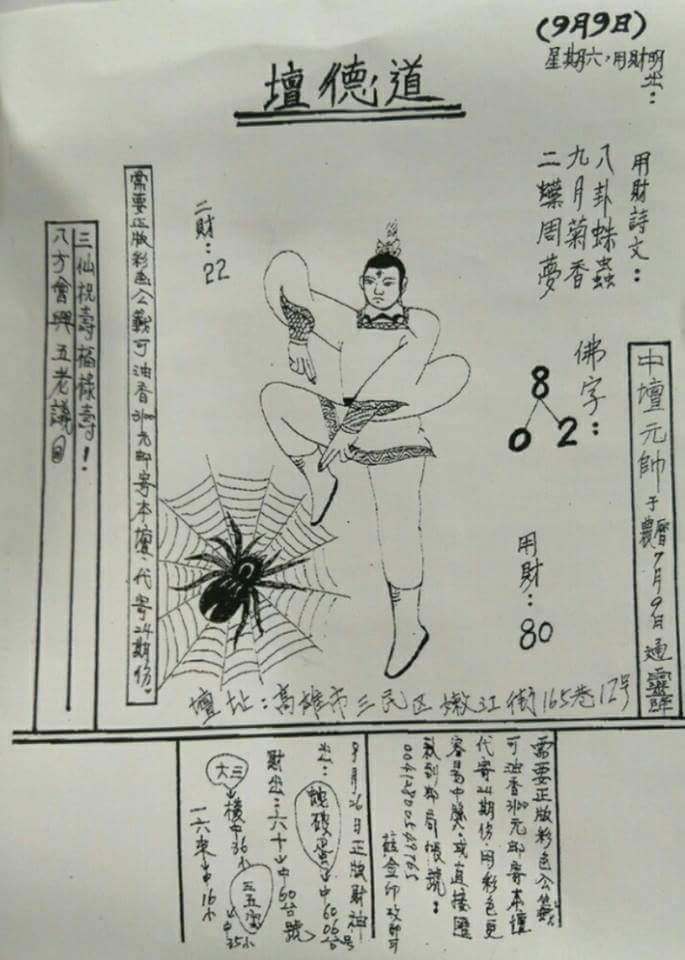 (9月9日)
星期六，用財明出：
道德壇
用財詩文：
八卦蛛蟲
九月菊香
二蝶周夢
佛字：
8
0 2
用財：
80
中壇元帥于農曆7月9日通靈譯
二財：
22
需要正版彩色公籤可油香3100元郵寄本壇，代寄24期份。
三仙祝壽福祿壽！
八方會興五老議
壇址：高雄市三民区嫩江街165巷12号
需要正版彩色公籤
可油香3100元郵寄本壇
代寄24期份，用彩色更
容易中獎，或直接匯
款到郵局帳號：
00412800549765
9月26日正版財神
出：說破蛋↓中6006台号
財出：六十↓中60台號
大三↓橫中36小
三五蛮↓中35小
一六來↓中16小